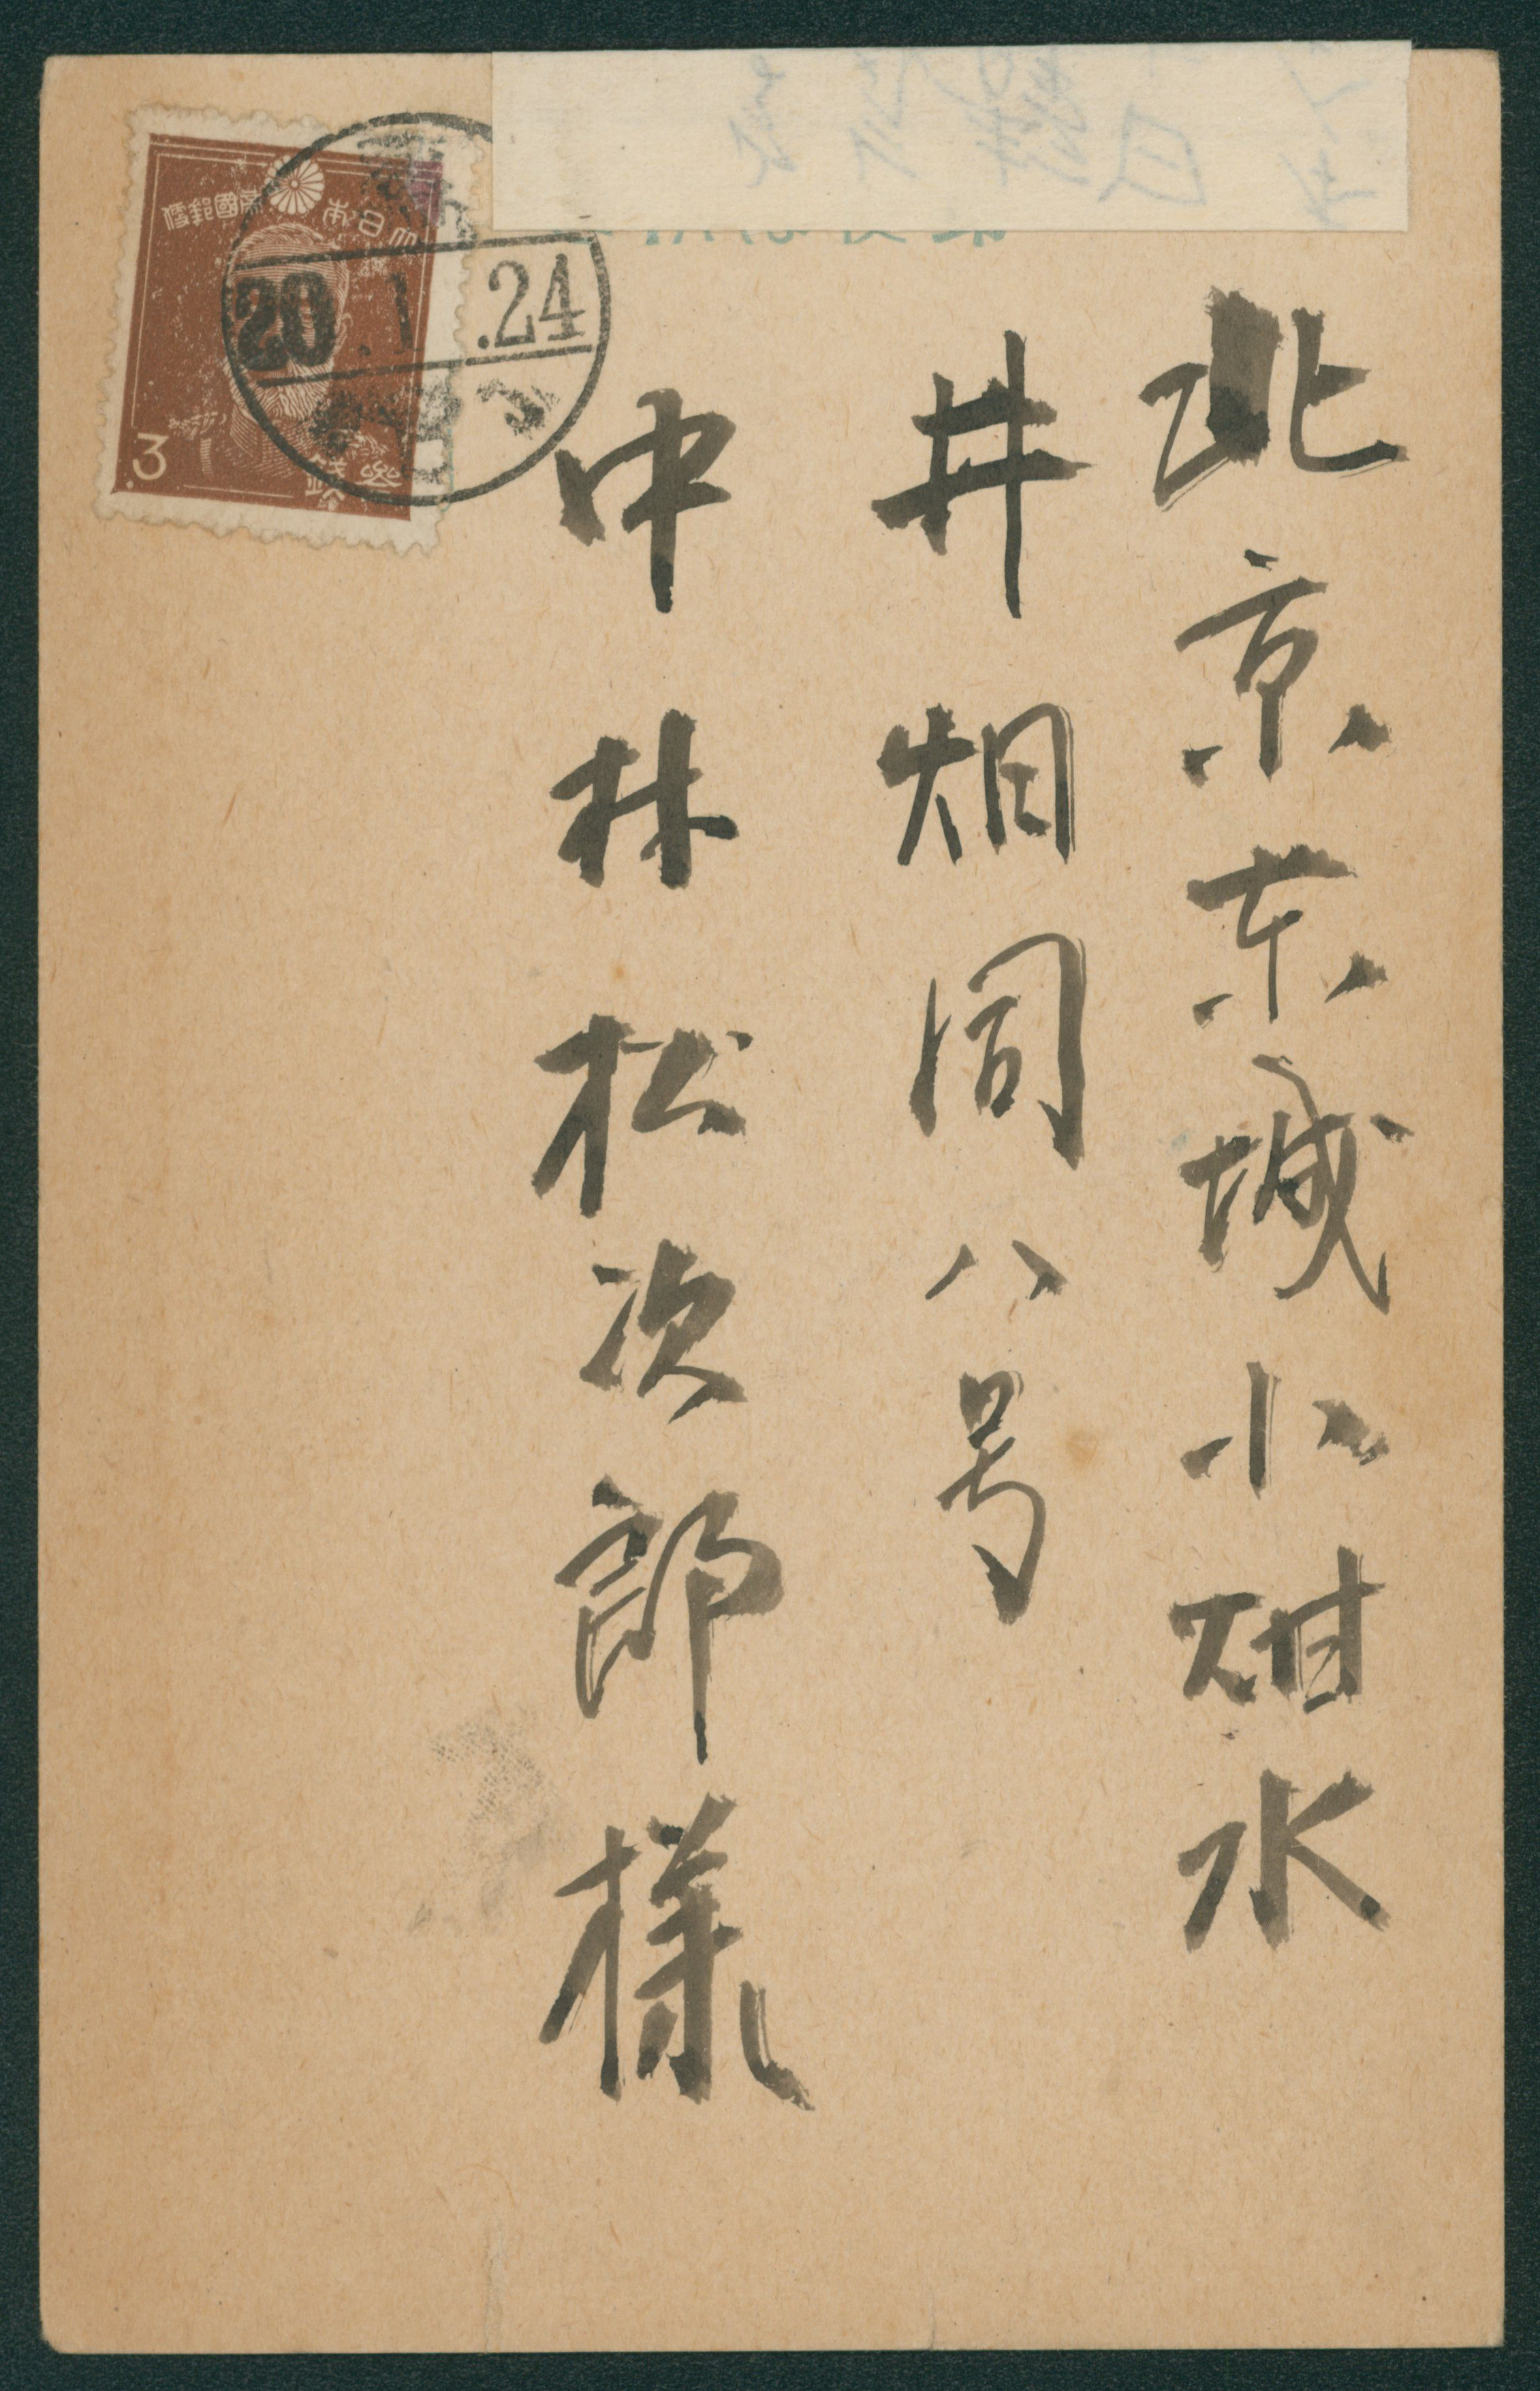 北京东城小甜水
井烟同八号
中林松次郎様
大日本帝國郵便
20.1.24
3
錢